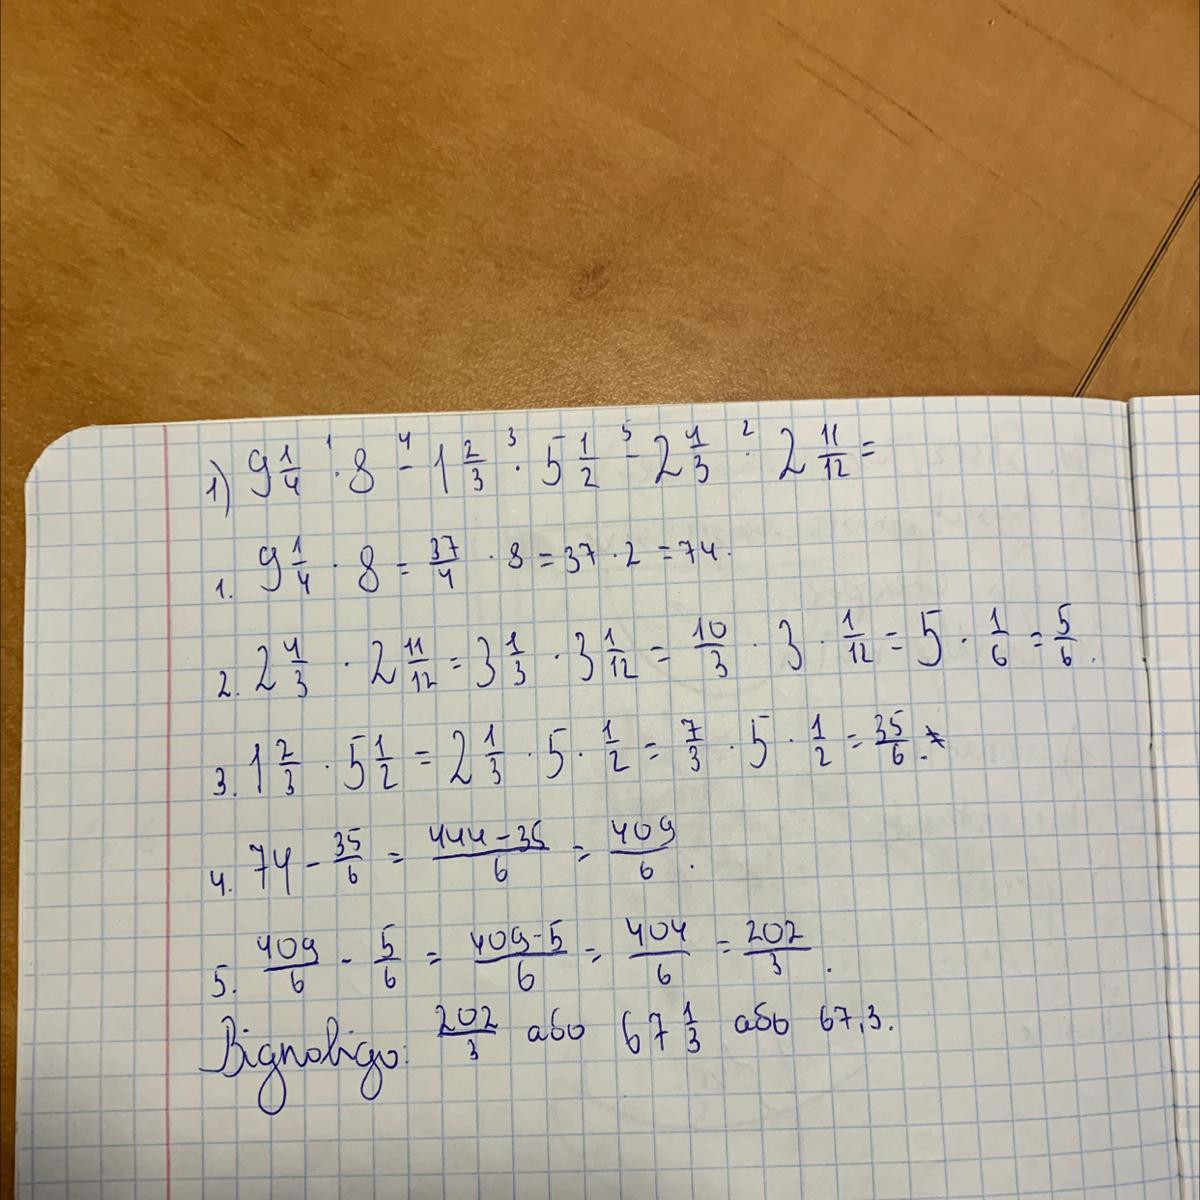 1) 9 1/4 ·¹ 8 -⁴ 1 2/3 ·³ 5 1/2 -⁵ 2 4/3 ·² 2 11/12 =
1. 9 1/4 · 8 = 37/4 · 8 = 37 · 2 = 74.
2. 2 4/3 · 2 11/12 = 3 1/3 · 3 1/12 = 10/3 · 3 · 1/12 = 5 · 1/6 = 5/6.
3. 1 2/3 · 5 1/2 = 2 1/3 · 5 · 1/2 = 7/3 · 5 · 1/2 = 35/6.
4. 74 - 35/6 = 444-35/6 = 409/6.
5. 409/6 - 5/6 = 409-5/6 = 404/6 = 202/3.
Відповідь: 202/3 або 67 1/3 або 67,3.